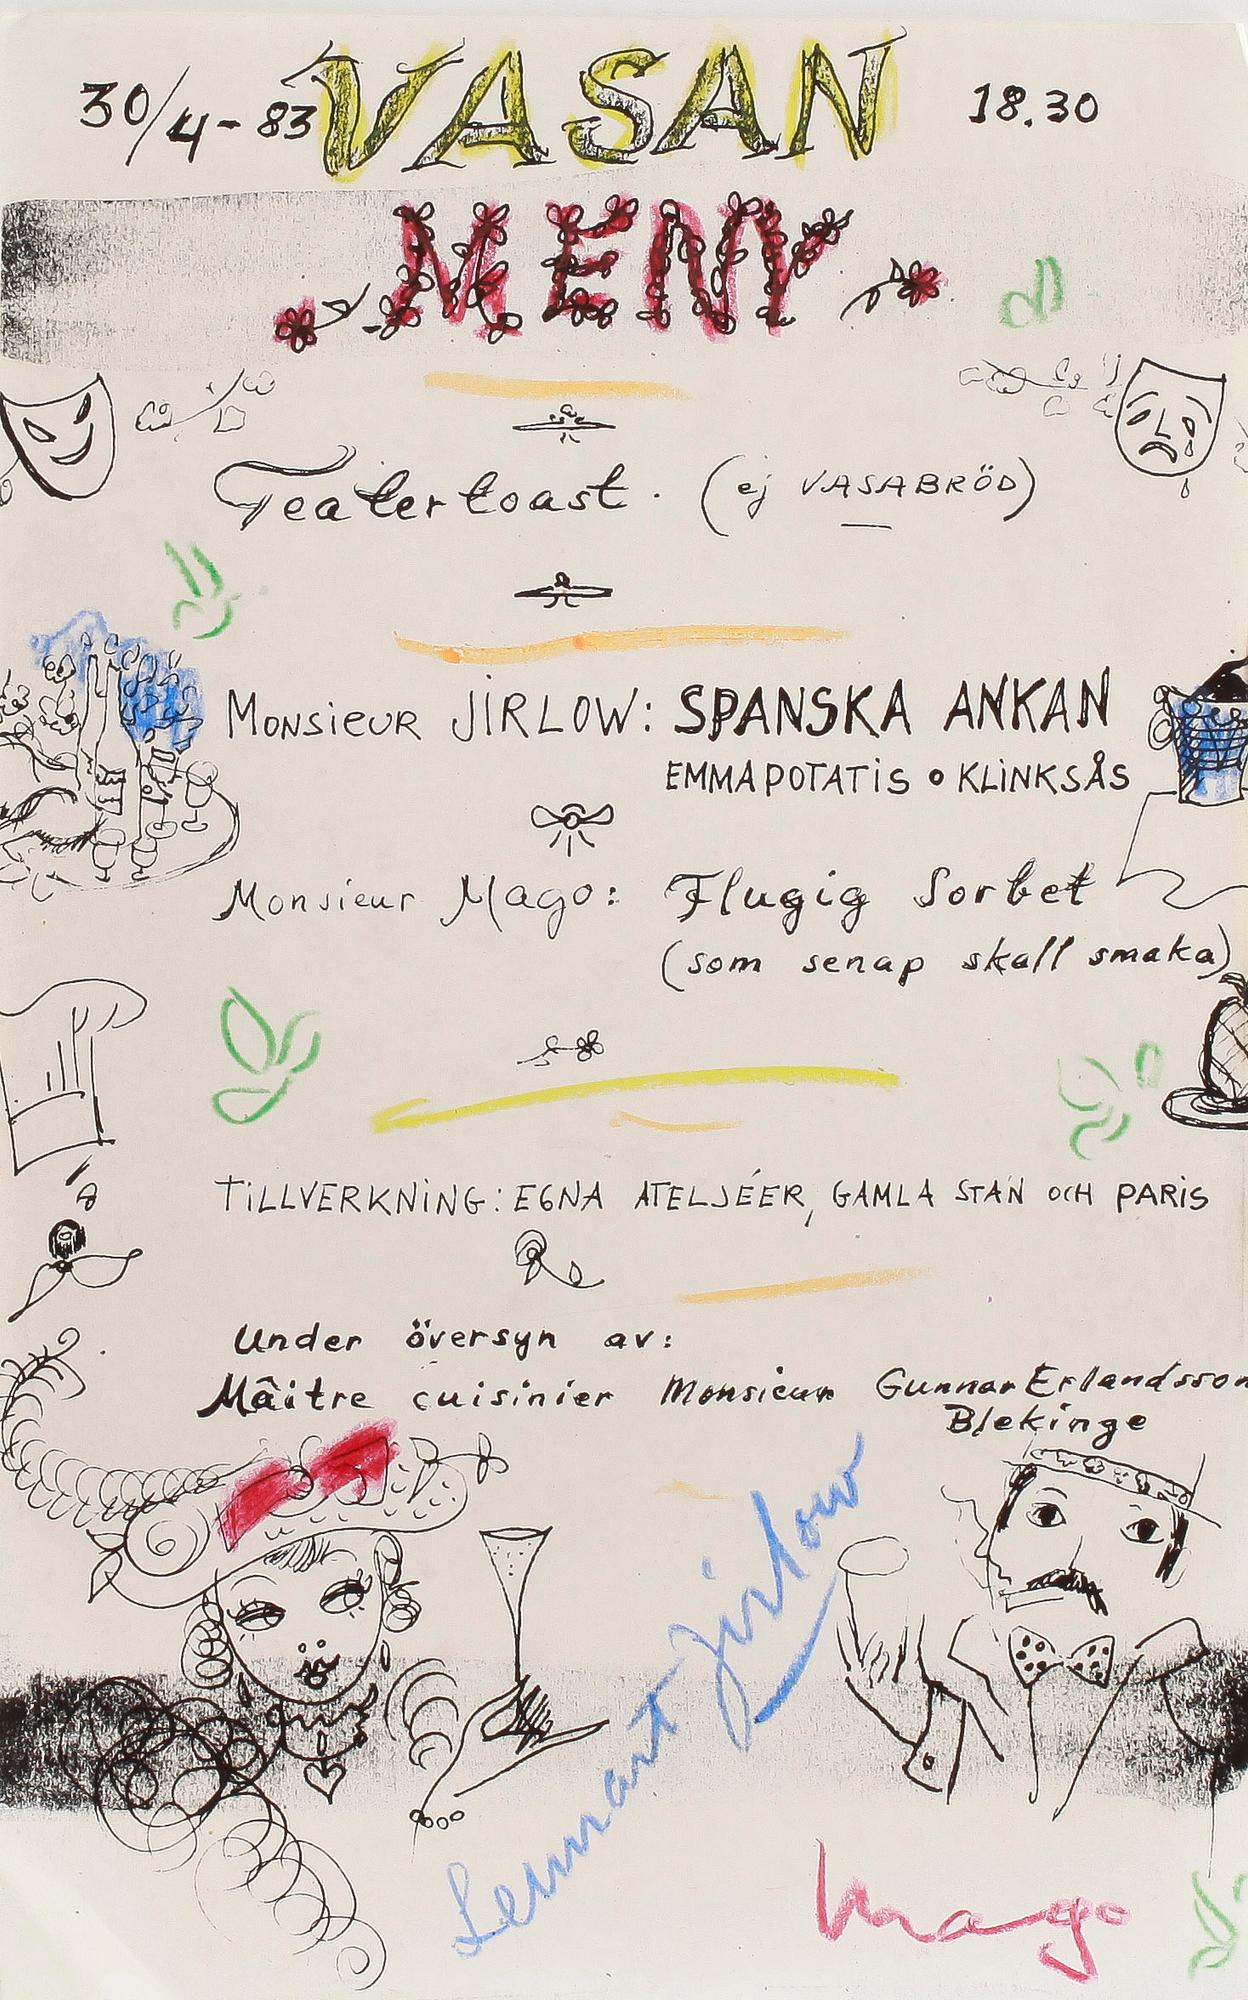 30/4-83 VASAN 18.30
MENY
Teatertoast. (ej VASABRÖD)
Monsieur JiRLOW: SPANSKA ANKAN
EMMAPOTATiS • KLiNKSÅS
Monsieur Mago: Flugig Sorbet
(som senap skall smaka)
TiLLVERKNiNG: EGNA ATELJÉER, GAMLA STAN OCH PARiS
Under översyn av:
Mâitre cuisinier Monsieur Gunnar Erlandsson
Blekinge
Lennart Jirlow
Mago